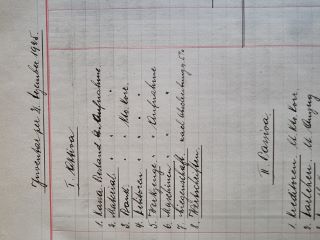 Inventar per 31. Dezember 1935.
I. Aktiva
1. Kassa Bestand lt. Aufnahme
2. Material " " "
3. Bank lt. Kto. Korr.
4. Debitoren " " "
5. Werkzeuge " Aufnahme
6. Maschinen " "
7. Liegenschaft nach Abschreibung 5%
8. Wertschriften
II. Passiva
1. Kreditoren lt. Kto. Korr.
2. Darlehen lt. Auszug